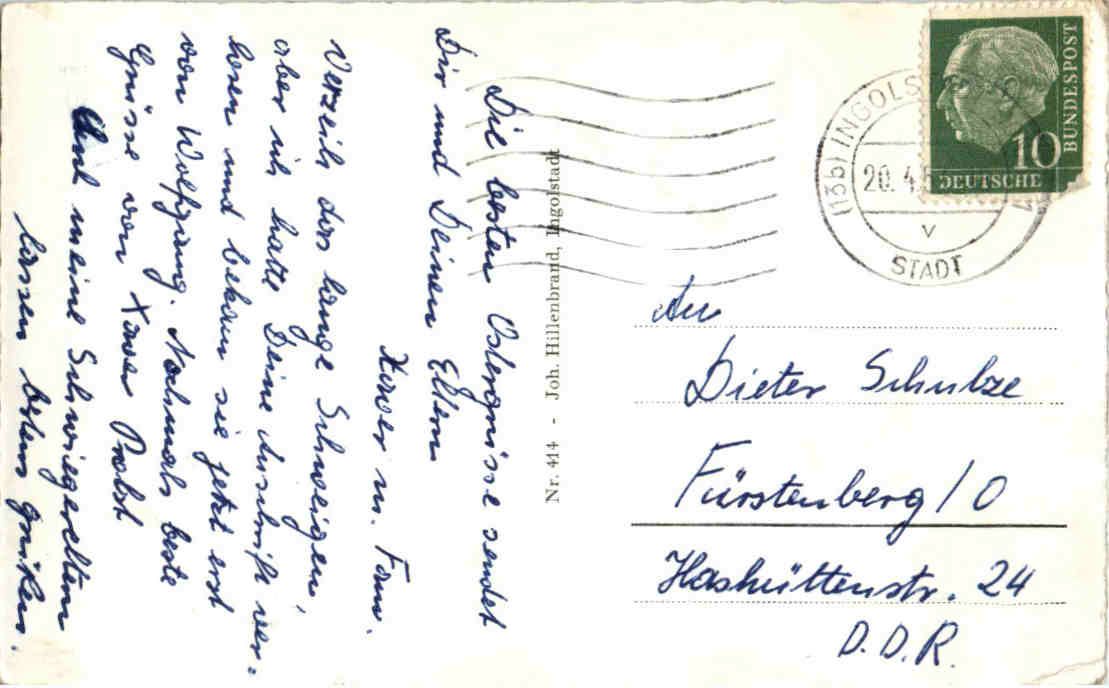 Die besten Ostergrüsse sendet
Dir und Deinen Eltern
Xaver m. Fam.
Verzeih das lange Schweigen
aber ich hatte Deine Anschrift ver-
loren und bekam sie jetzt erst
von Wolfgang. Nochmals beste
Grüsse von Xaver Probst
Auch meine Schwiegereltern
lassen bestens grüßen.
Nr. 414 - Joh. Hillenbrand, Ingolstadt
BUNDESPOST
10
DEUTSCHE
(13b) INGOLS
20. 4.
V
STADT
An
Dieter Schulze
Fürstenberg / O
Hashüttenstr. 24
D.D.R.